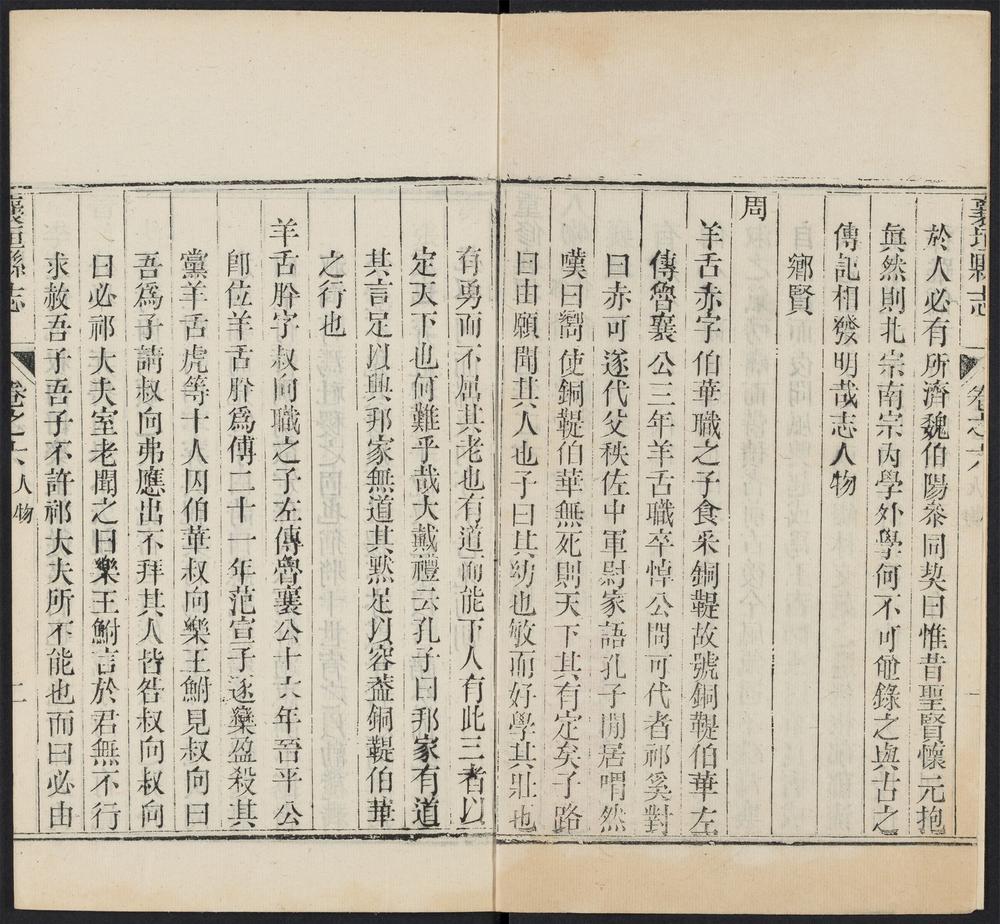 襄垣縣志 卷之六 人物 一
於人必有所濟魏伯陽叅同契曰惟昔聖賢懷元抱
眞然則北宗南宗內學外學何不可兼錄之與古之
傳記相發明哉志人物
鄉賢
周
羊舌赤字伯華職之子食采銅鞮故號銅鞮伯華左
傳魯襄公三年羊舌職卒悼公問可代者祁奚對
曰赤可遂代父秩佐中軍尉家語孔子閒居喟然
嘆曰嚮使銅鞮伯華無死則天下其有定矣子路
曰由願聞其人也子曰其幼也敏而好學其壯也
有勇而不屈其老也有道而能下人有此三者以
定天下也何難乎哉大戴禮云孔子曰邦家有道
其言足以興邦家無道其默足以容蓋銅鞮伯華
之行也
羊舌肸字叔向職之子左傳魯襄公十六年晉平公
卽位羊舌肸爲傅二十一年范宣子逐欒盈殺其
黨羊舌虎等十人囚伯華叔向樂王鮒見叔向曰
吾爲子請叔向弗應出不拜其人皆咎叔向叔向
曰必祁大夫室老聞之曰樂王鮒言於君無不行
求赦吾子吾子不許祁大夫所不能也而曰必由
襄垣縣志 卷之六 人物 二